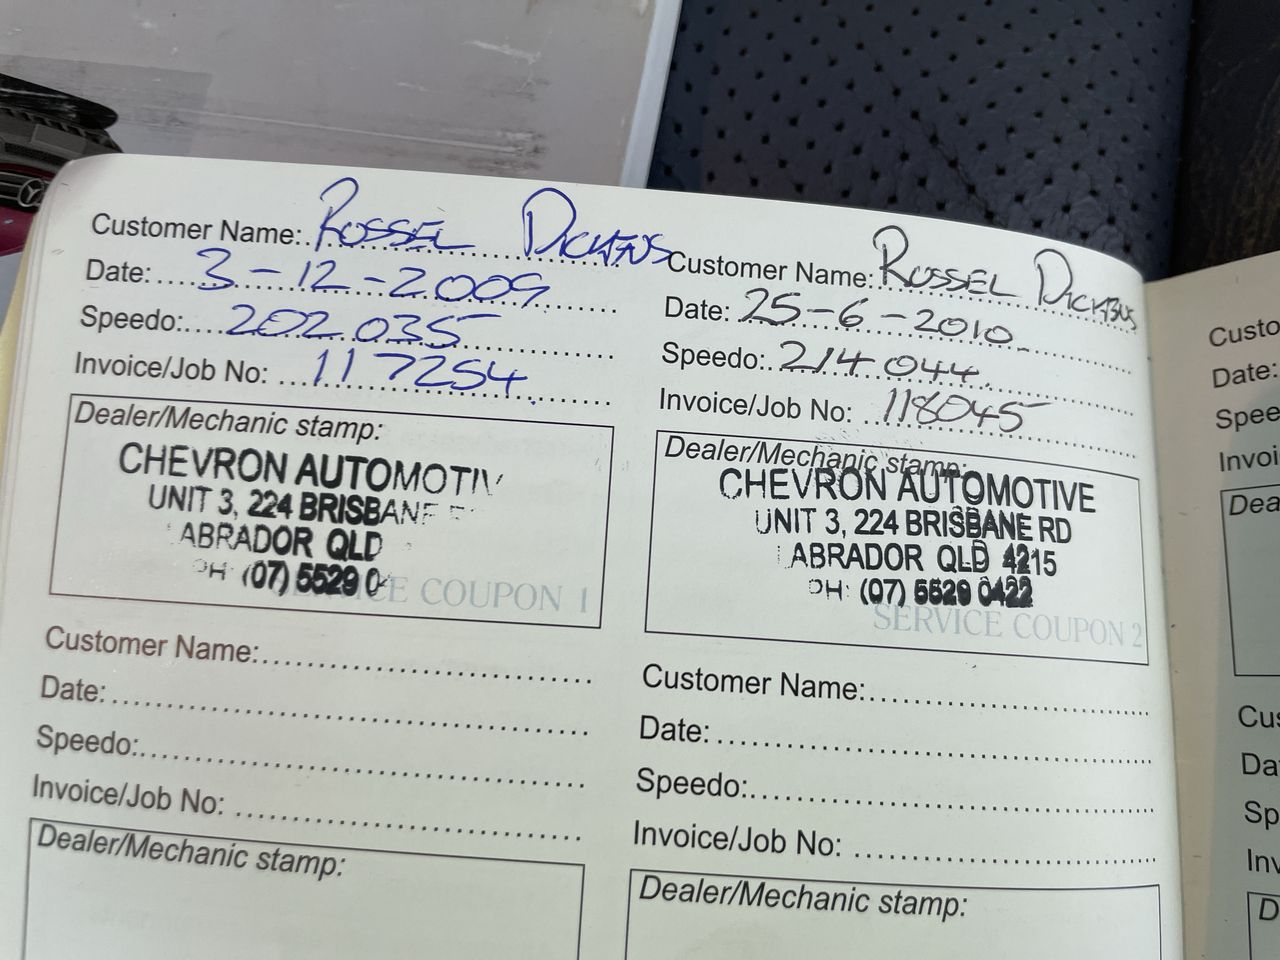 Customer Name: ROSSEL
Date: 3-12-2009
Speedo: 202035
Invoice/Job No: 117254
Dealer/Mechanic stamp:
CHEVRON AUTOMOTIV
UNIT 3, 224 BRISBANE
ABRADOR QLD
PH: (07) 5529 0
SERVICE COUPON 1
Customer Name:
Date:
Speedo:
Invoice/Job No:
Dealer/Mechanic stamp:
Customer Name: RUSSEL
Date: 25-6-2010
Speedo: 214044
Invoice/Job No: 118045
Dealer/Mechanic stamp:
CHEVRON AUTOMOTIVE
UNIT 3, 224 BRISBANE RD
LABRADOR QLD 4215
PH: (07) 5529 0422
SERVICE COUPON 2
Customer Name:
Date:
Speedo:
Invoice/Job No:
Dealer/Mechanic stamp:
Custo
Date:
Spee
Invoi
Dea
Cus
Da
Sp
Inv
D